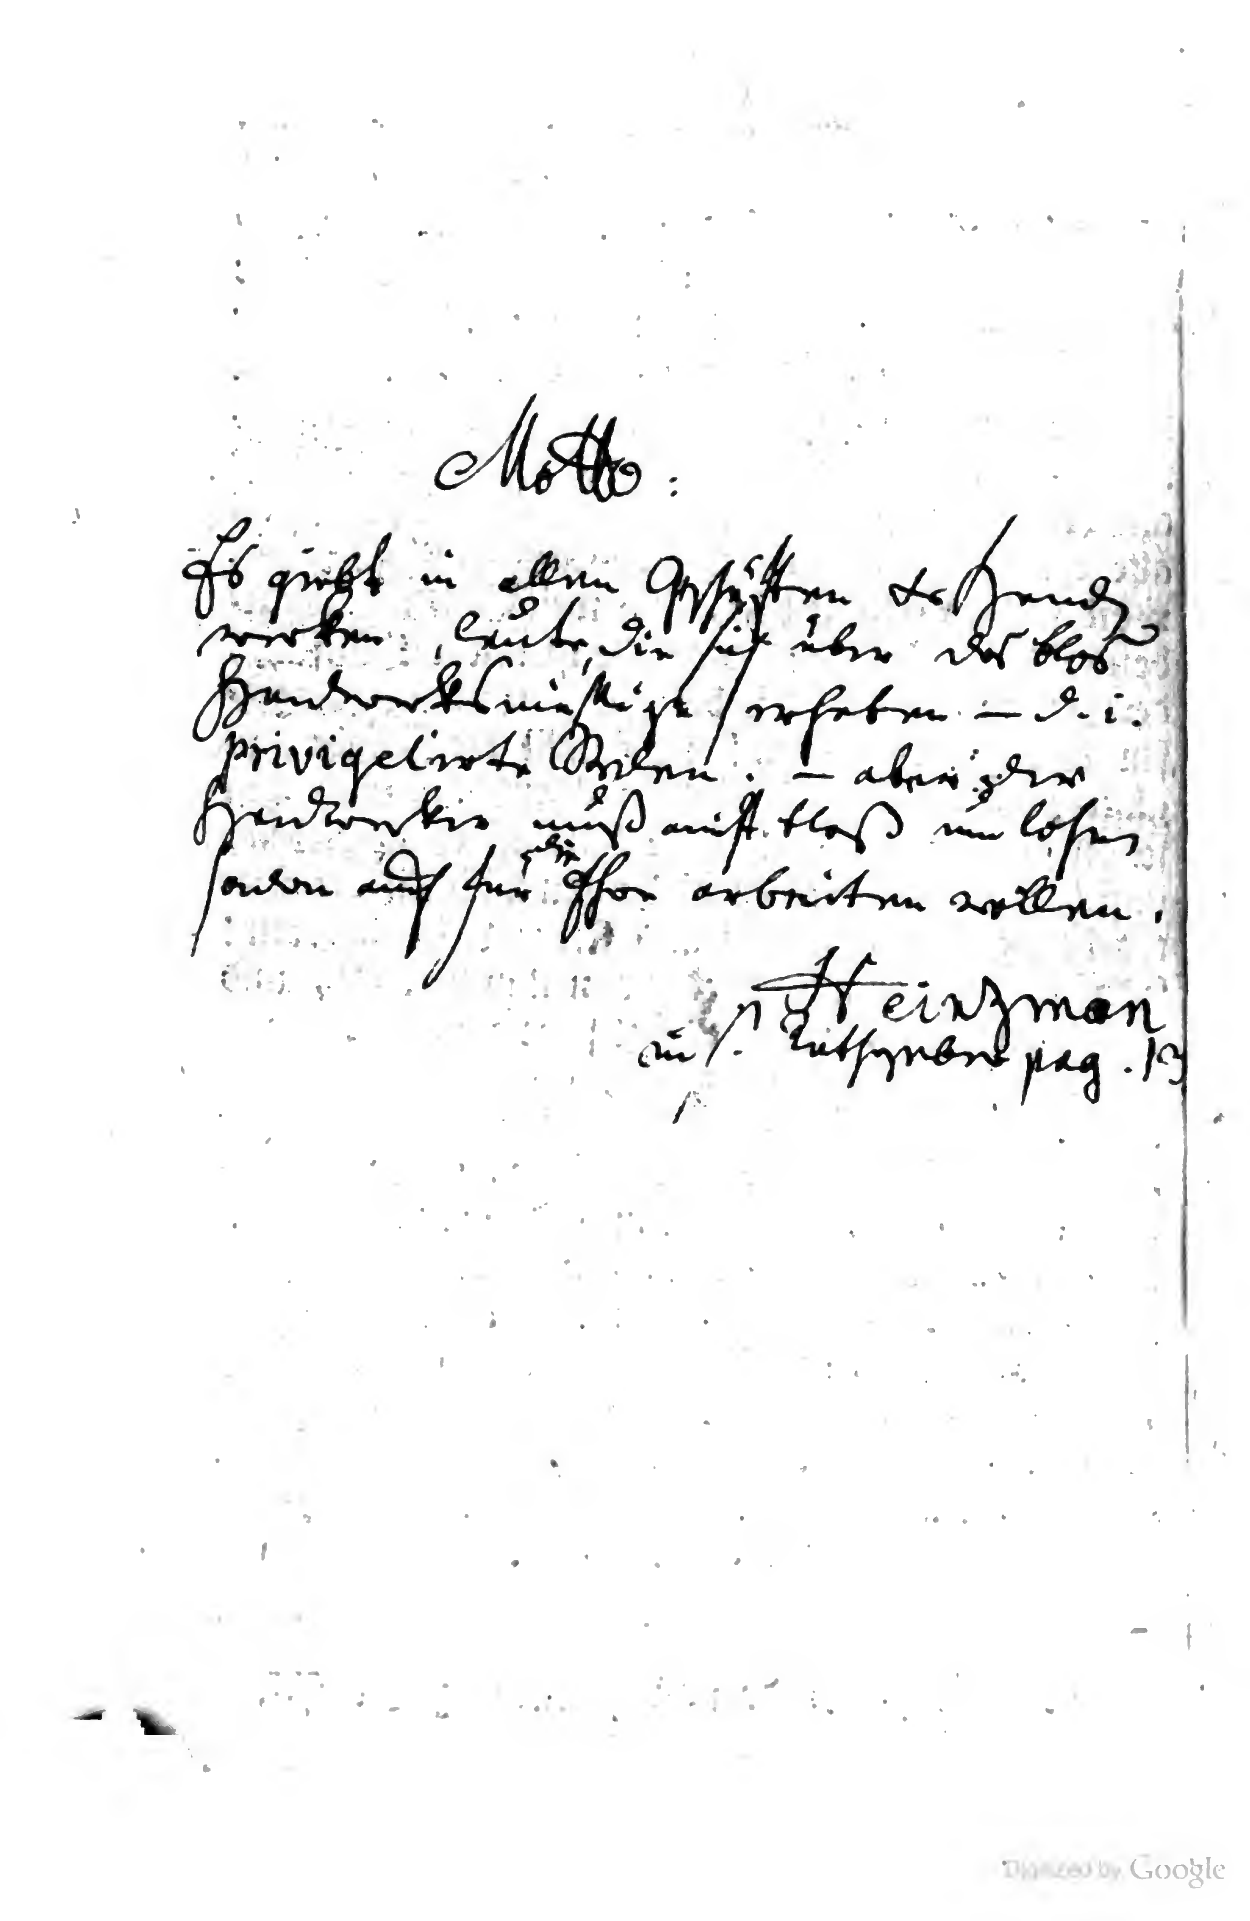 Motto:
Es giebt in allen Geschäften & Hand
werken, leute, die sich über das blos
Handwerksmäßige erheben — d. i.
privigelirte Selen. — aber jeder
Handwerker muß nicht bloß um lohn
sondern auch für die Ehre arbeiten wollen.
Heinzman
in s. Rathgeber pag. 13
Digitized by Google